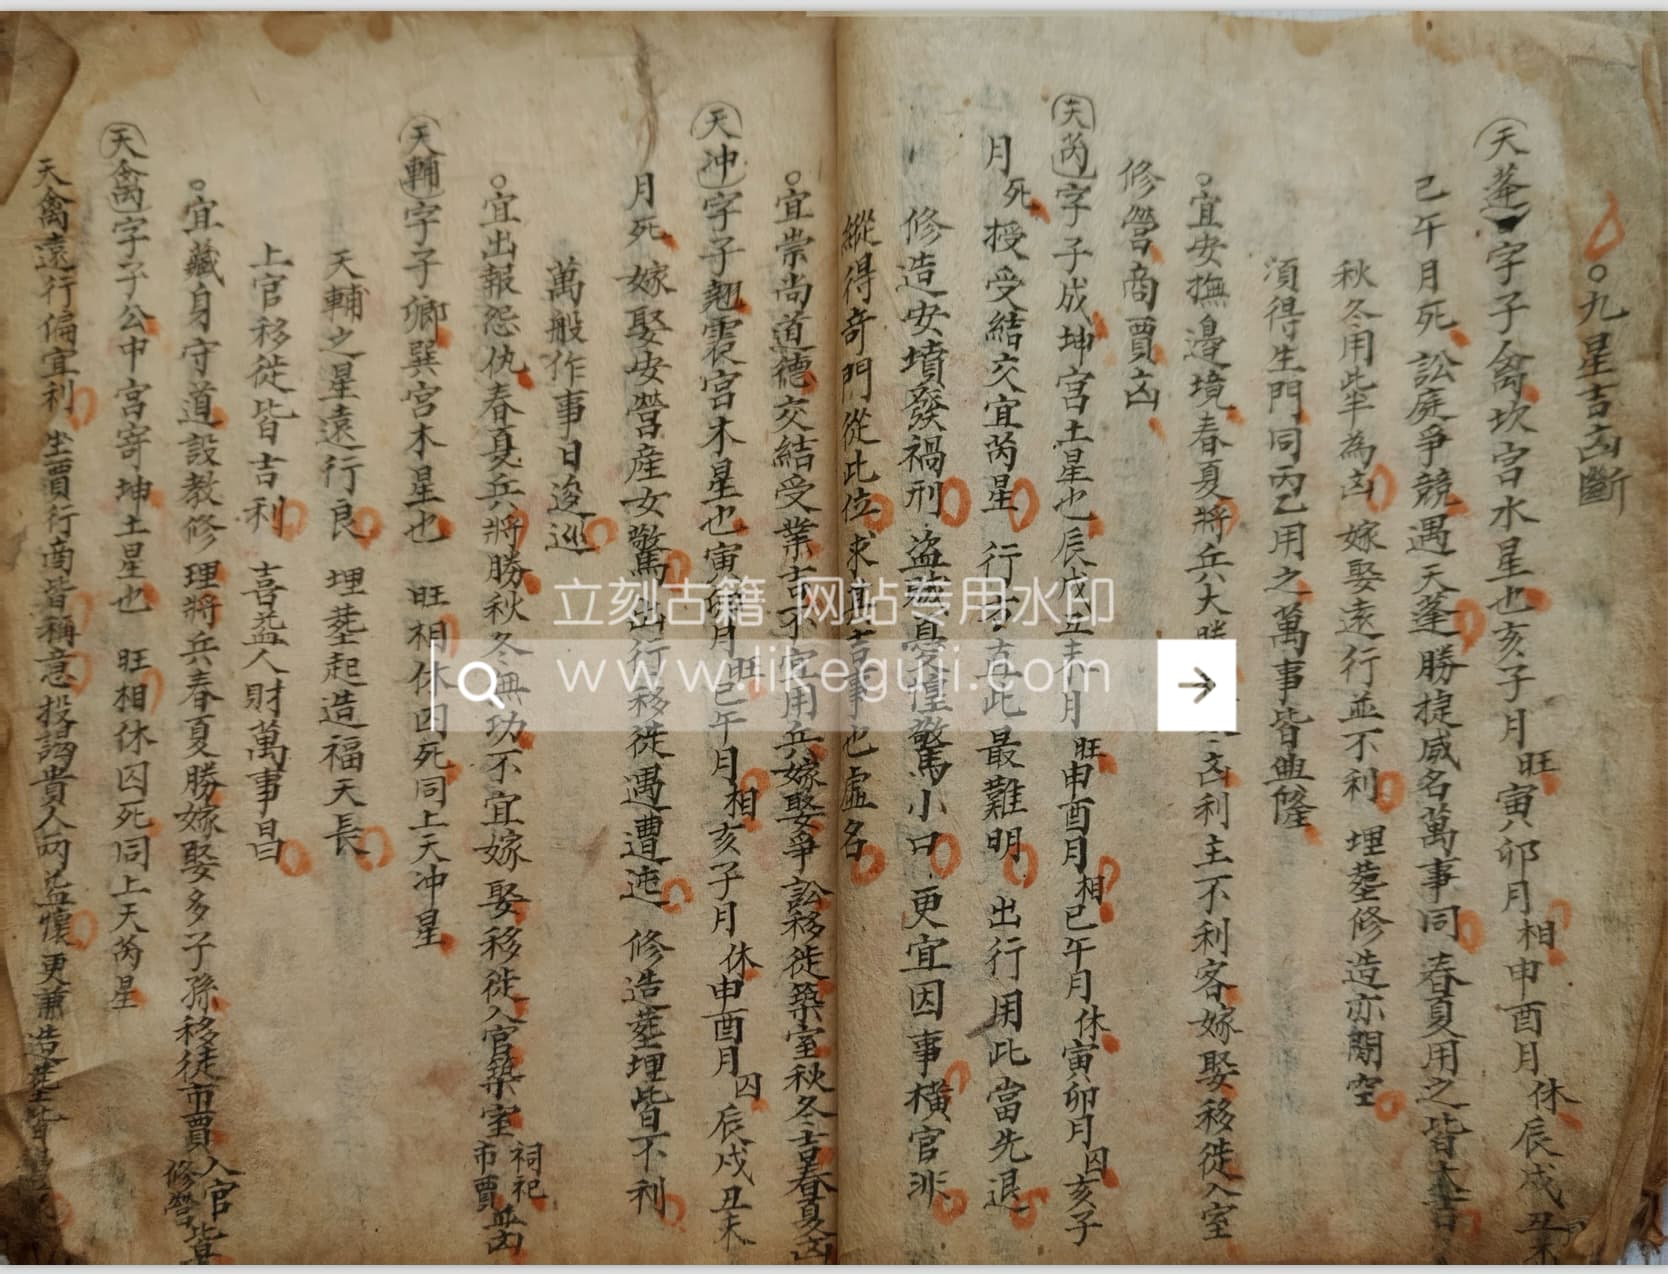 九星吉凶斷
天蓬字子禽坎宮水星也亥子月旺寅卯月相申酉月休辰戌丑未
巳午月死 訟庭爭競遇天蓬勝捷威名萬事同 春夏用之皆大吉
秋冬用此半為凶 嫁娶遠行並不利 埋葬修造亦閑空
須得生門同丙乙用之萬事皆興隆
宜安撫邊境春夏將兵大勝 凶利主不利客嫁娶移徙入室
修營商賈凶
天芮字子成坤宮土星也辰戌丑未月旺申酉月相巳午月休寅卯月囚亥子
月死 授受結交宜芮星 行 此最難明 出行用此當先退
修造安墳發禍刑 盜 憂惶驚小口 更宜因事橫官非
縱得奇門從此位求其吉事也虛名
宜崇尚道德交結受業吉不宜用兵嫁娶爭訟移徙築室秋冬吉春夏凶
天冲字子翹震宮木星也寅卯月旺巳午月相亥子月休申酉月囚辰戌丑未
月死 嫁娶安營產女驚 出行移徙遇遭迍 修造葬埋皆不利
萬般作事日逡巡
宜出報怨仇春夏兵將勝秋冬無功不宜嫁娶移徙入官築室祠祀市賈並凶
天輔字子卿巽宮木星也 旺相休囚死同上天冲星
天輔之星遠行良 埋葬起造福天長
上官移徙皆吉利 喜益人財萬事昌
宜藏身守道設教修理將兵春夏勝嫁娶多子孫移徒市賈入官修營皆
天禽字子公中宮寄坤土星也 旺相休囚死同上天芮星
天禽遠行偏宜利 坐賈行商皆稱意 投謁貴人兩益懷 更兼造葬皆
立刻古籍 网站专用水印
www.likeguji.com